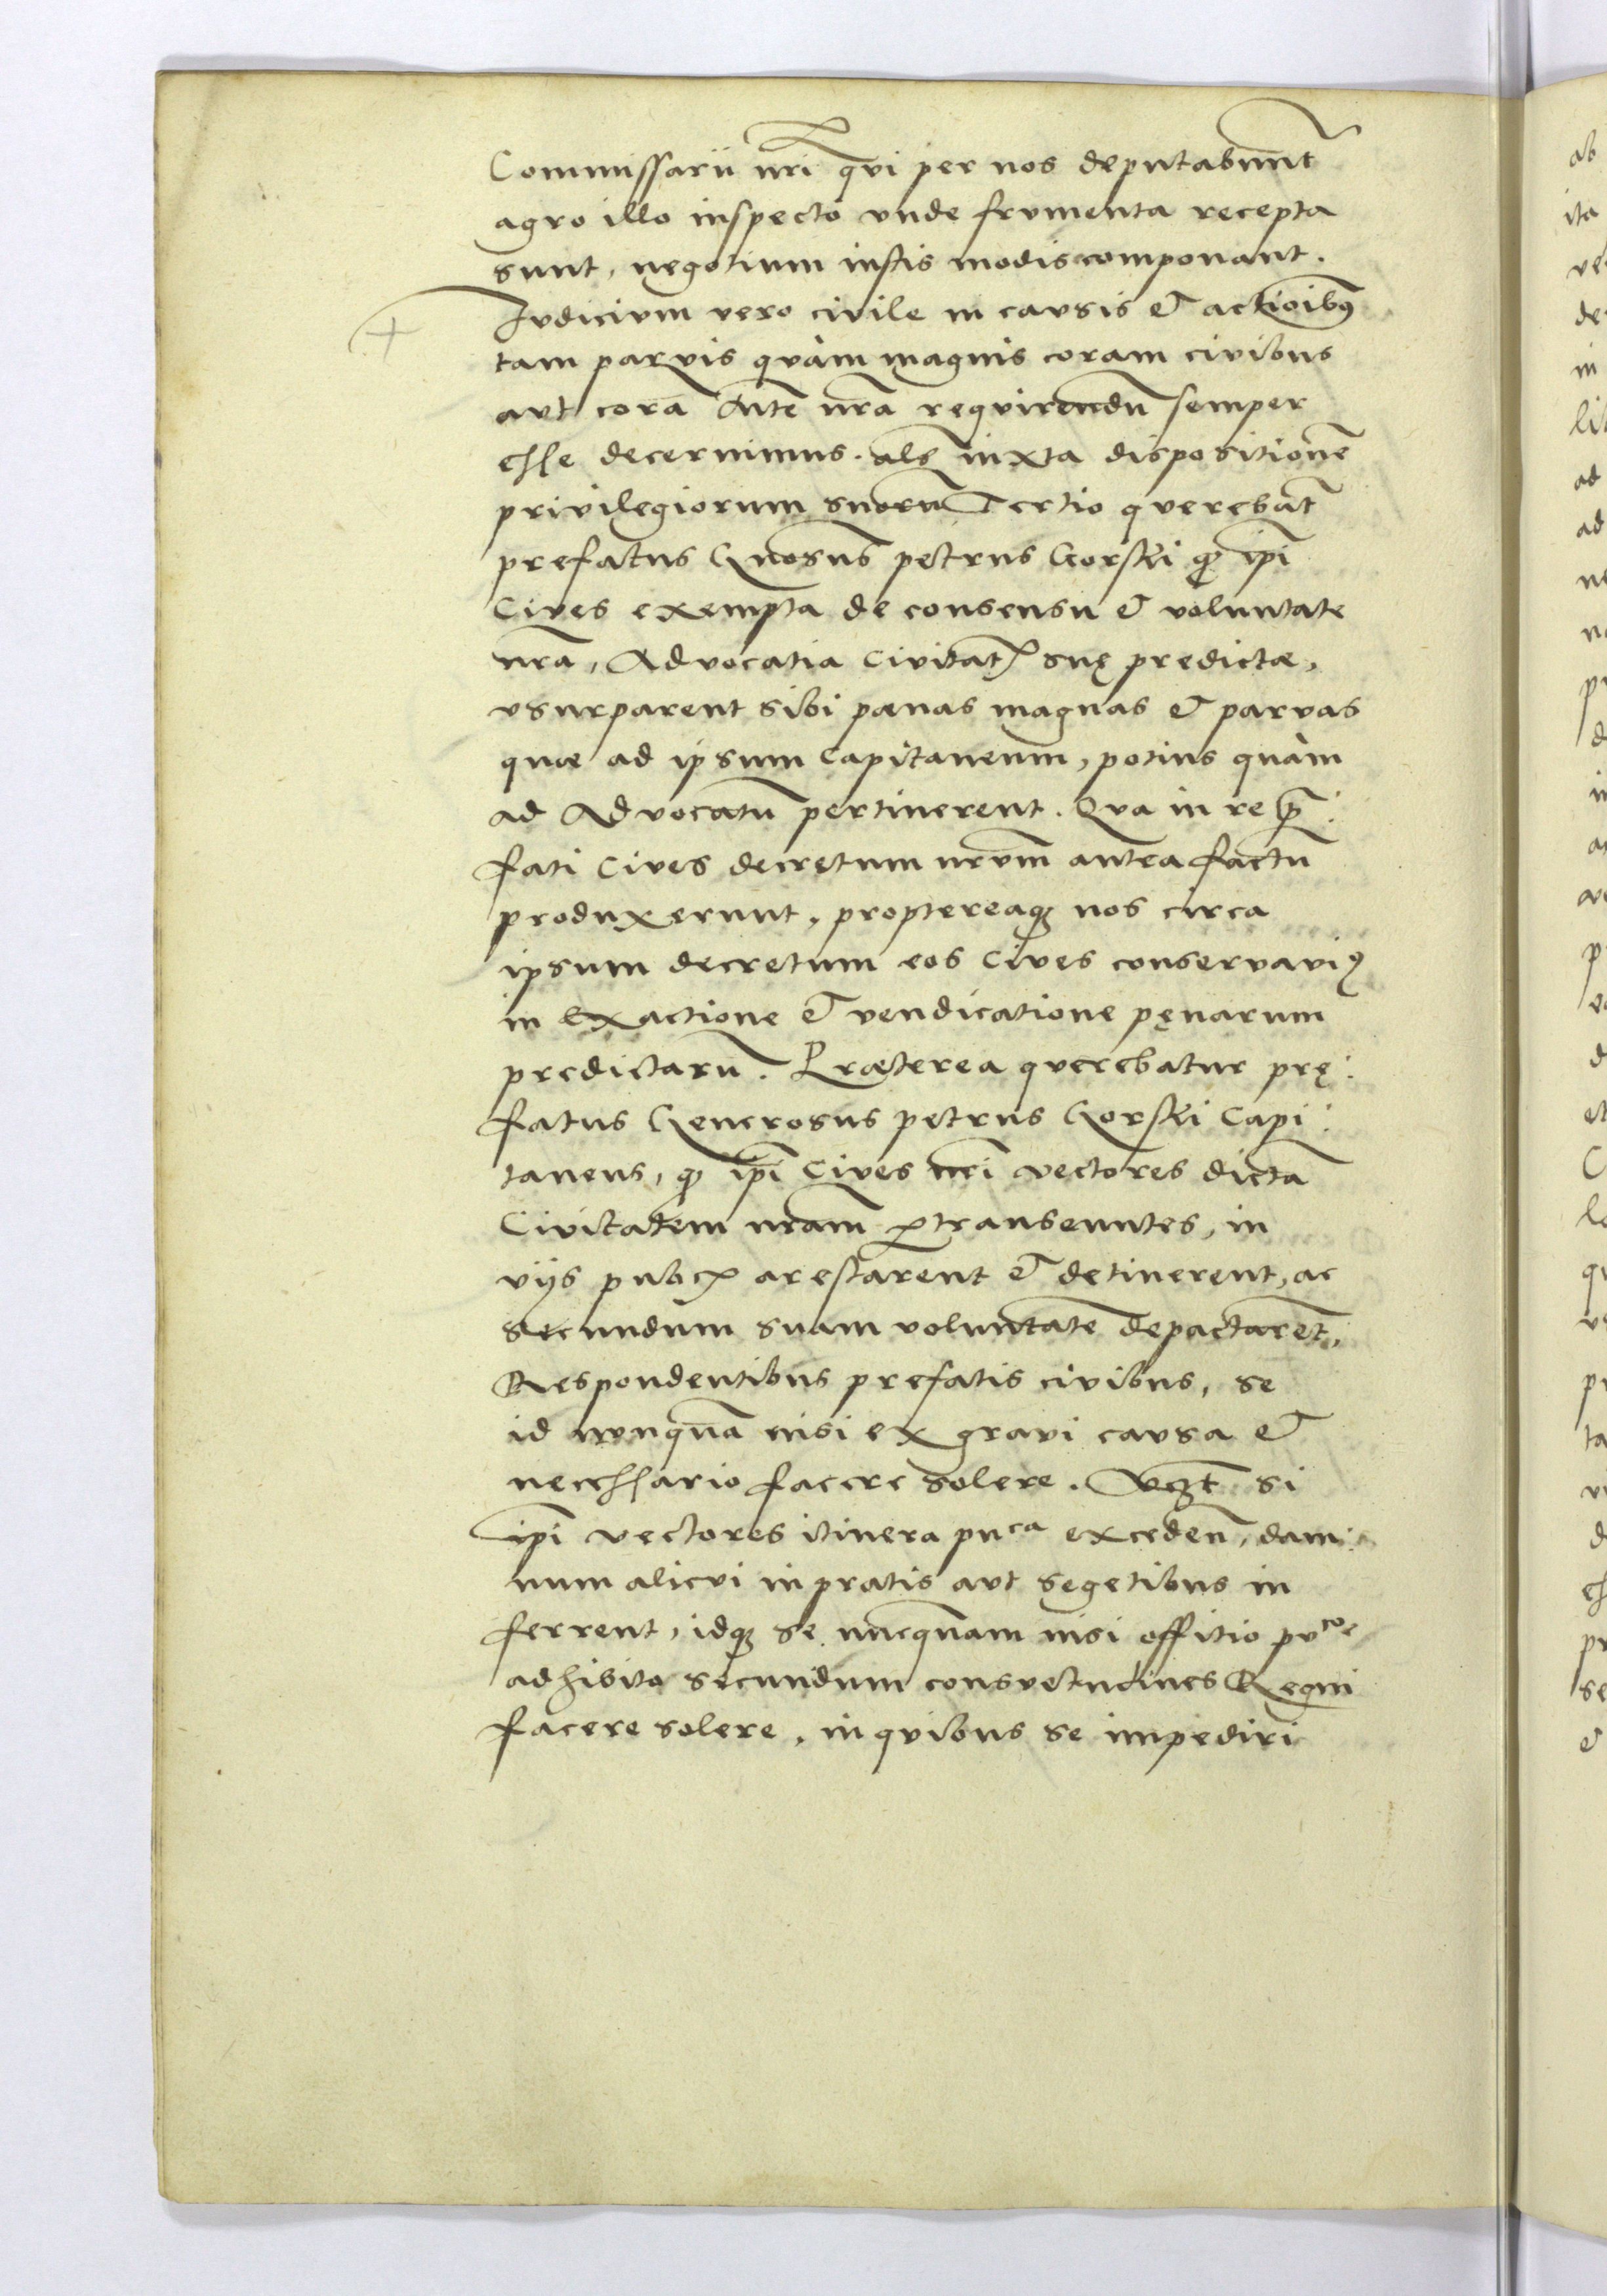 Commissarii nr̃i qvi per nos deputabunt̃
agro illo inspecto vnde frvmenta recepta
sunt, negotium iustis modis componant.
Ivdicivm vero civile in cavsis & actioībꝰ
tam parvis qvàm magnis coram civibus
avt corã Mtẽ nr̃a reqvirendũ semper
esse decernimus. als iuxta dispositionẽ
privilegiorum suorũ Tertio qverebat̃
prefatus Gnosus̃ petrus Gorski qͦ ip̃i
Cives exempta de consensu & voluntate
nr̃a, Advocatia Civitatꝭ suę predictæ,
vsurparent sibi pœnas magnas & parvas
quæ ad ipsum Capitaneum, potius quàm
ad Advocatũ pertinerent. Qva in re p̃:
fati Cives decretum nrvm̃ antea factũ
produxerunt, proptereaqꝫ nos circa
ipsum decretum eos Cives conservaviꝰ
in Exactione & vendicatione pęnarum
predictarũ. Præterea qverebatur pre̜:
fatus Generosus petrus Gorski Capi:
taneus, qͦ ip̃i Cives nr̃i vectores dictã
Civitatem nram̃ ꝑtranseuntes, in
vijs pubcꝭ arestarent & detinerent, ac
secundum suam voluntatẽ depactarẽt,
Respondentibus prefatis civibus, se
id nvnquã nisi ex gravi cavsa &
necessario facere solere. Vꝫt si
ip̃i vectores itinera puᶜᵃ excedeñ, dam:
num alicvi in pratis avt segetibus in
ferrent, idqꝫ se nuncquam nisi offitio pvᶜᵒ,
adhibito secundum consvetudines Regni
facere solere, in qvibus se impediri
ab
ita
in
ad
ad